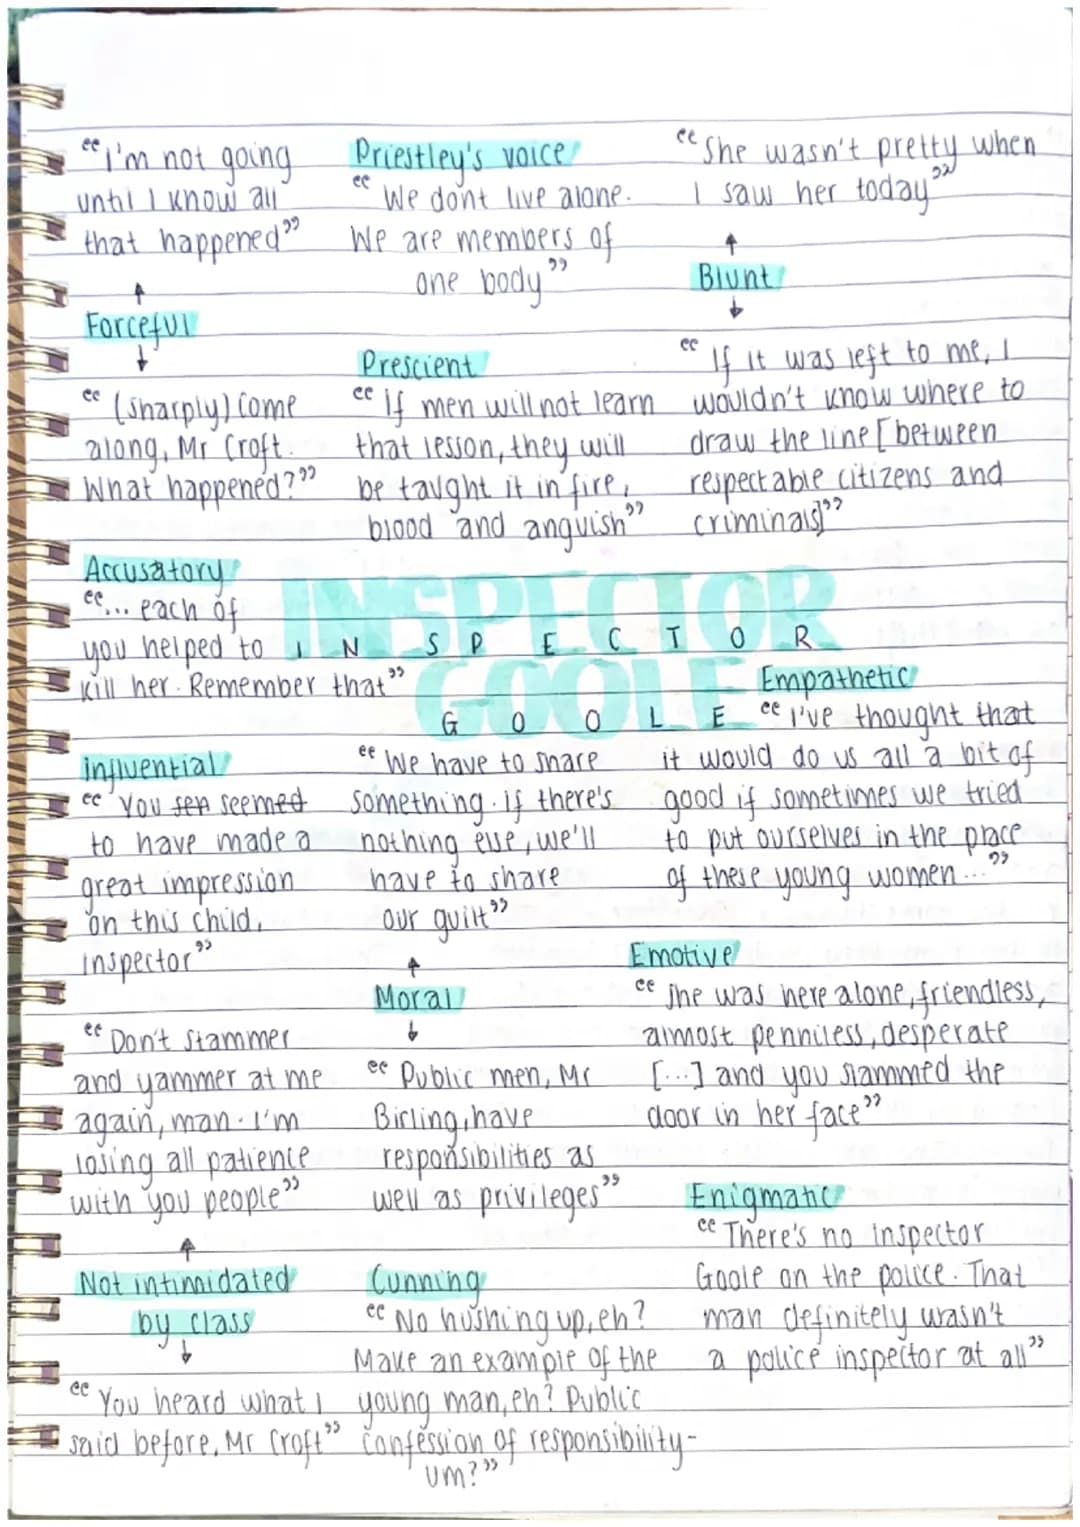 "I'm not going
until I know all
that happened"
Forceful
"(sharply) Come
along, Mr Croft.
What happened?"
Priestley's voice
"We dont live alone.
We are members of
one body"
Prescient
"If men will not learn
that lesson, they will
be taught it in fire,
blood and anguish"
"She wasn't pretty when
I saw her today"
Blunt
"If it was left to me, I
wouldn't know where to
draw the line [between
respectable citizens and
criminals]"
Accusatory
"... each of
you helped to
kill her. Remember that"
INSPECTOR
GOOLE
INSPECTOR
GOOLE
Empathetic
"I've thought that
it would do us all a bit of
good if sometimes we tried
to put ourselves in the place
of these young women..."
influential
"You seemed
to have made a
great impression
on this child,
inspector"
"We have to share
something. If there's
nothing else, we'll
have to share
our guilt"
Moral
"Public men, Mr
Birling, have
responsibilities as
well as privileges"
Emotive
"she was here alone, friendless,
almost penniless, desperate
[...] and you slammed the
door in her face"
"Don't stammer
and yammer at me
again, man. I'm
losing all patience
with you people"
Not intimidated
by class
"You heard what I
said before, Mr Croft"
Cunning
"No hushing up, eh?
Make an example of the
young man, eh? Public
confession of responsibility-
um?"
Enigmatic
"There's no inspector
Goole on the police. That
man definitely wasn't
a police inspector at all"